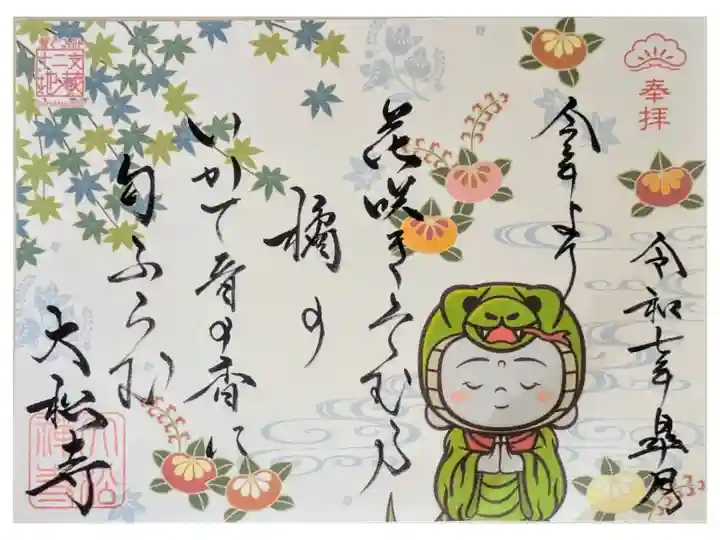 奉拝
令和七年皐月
今年より
花咲きそむる
橘の
いかて昔の香に
匂ふらむ
大松寺